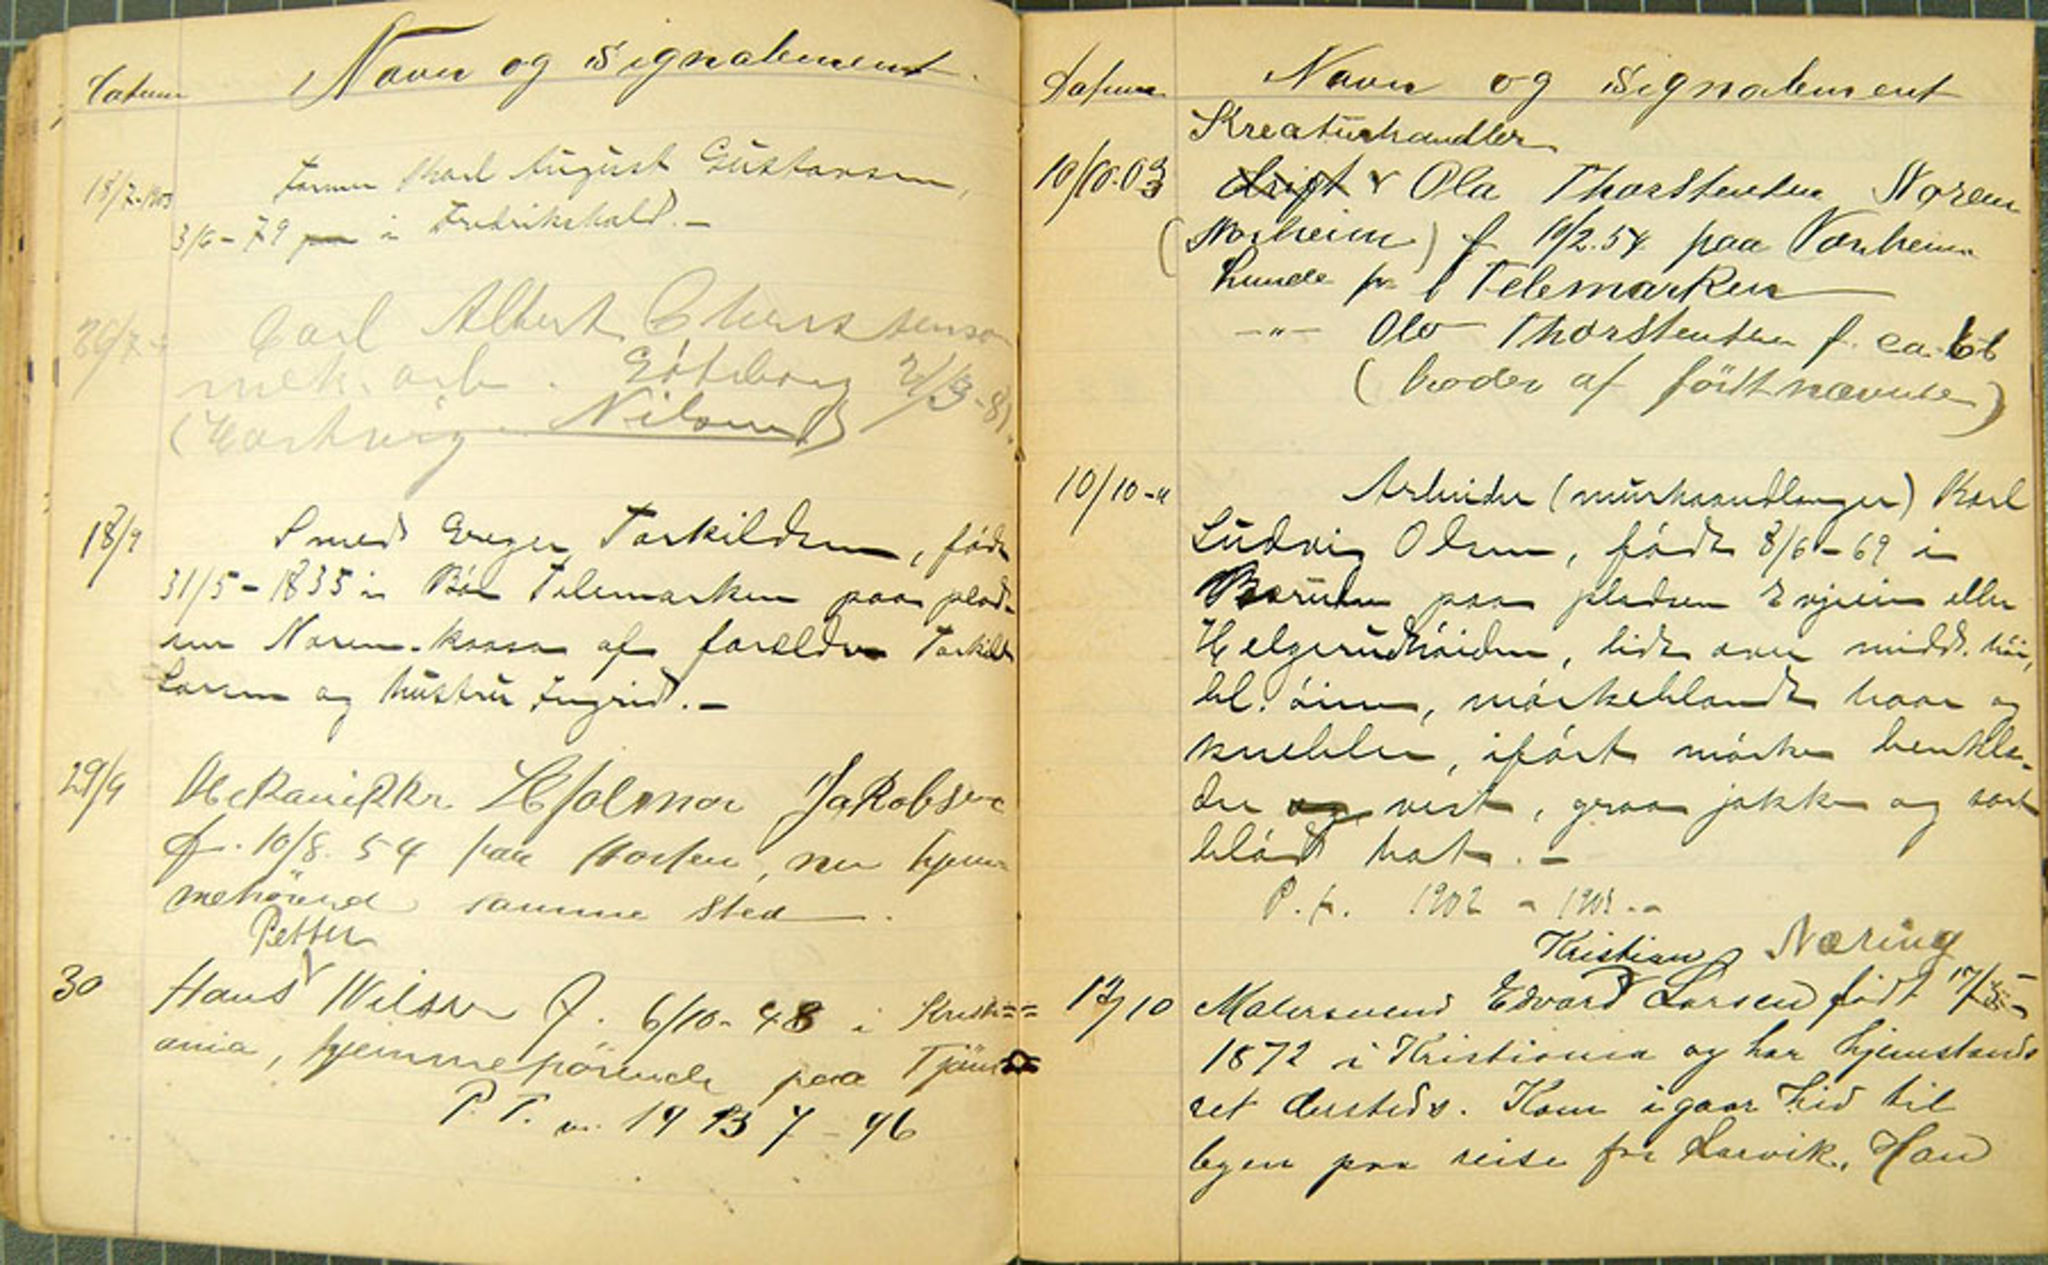 Datum Navn og Signalement.
18/7-1903 Karl August Gustavsen,
3/6-79 i Fredrikshald.-
26/7 Carl Albert Christenson
mek. arb. Göteborg
(Hartvig Nilsen)
18/9 Smed Torkildsen, födt
31/5-1835 i Bö Telemarken paa plad-
sen Noren-kaasa af forældre Torkild
Larsen og hustru Ingrid.-
29/9 Mekaniker Hjalmar Jakobsen
f. 10/8.54 paa Horten, nu hjem-
mehörende samme sted.
Petter
30 Hans Nilsen f. 6/10-48 i Kristi==
ania, hjemmehörende paa Tjöme
P. T. 19 13 7-96
Datum Navn og Signalement
Kreaturhandler
10/10.03 drift v Ola Thorstensen Noren
(Norheim) f 10/2.54 paa
Lunde pr Telemarken
-"- Olav Thorstensen f. ca. 66
(broder af förstnævnte)
10/10-" Arbeider (murhaandlanger) Karl
Ludvig Olsen, födt 8/6-69 i
Bærum paa pladsen Evjein eller
Helgerudhöiden, lidt over midd. höi,
bl. öine, mörkeblondt haar og
knebler, iført mörke benklæ-
der og vest, graa jakke og sort
blöd hat.-
P. f. 1902 - 1903.-
Kristian Næring
12/10 Malersvend Edvard Larsen födt 17/5-
1872 i Kristiania og har hjemstavds
ret dersteds. Kom igaar hid til
byen paa reise fra Larvik. Han